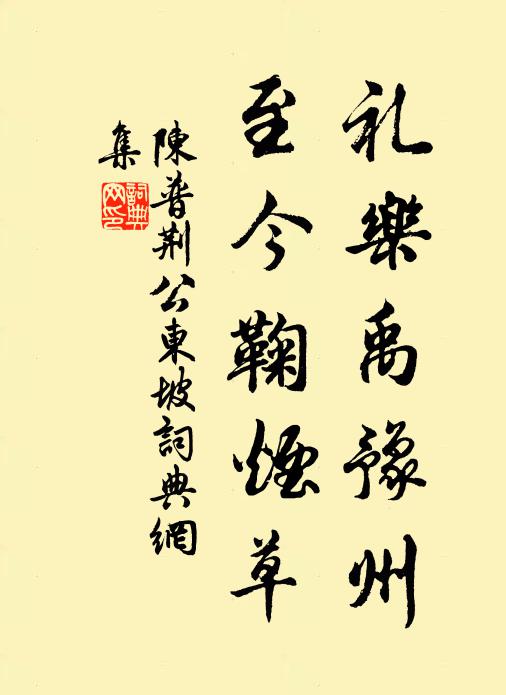 礼樂禹豫州
至今鞠煙草
陳普荆公東坡詞典網
集
詞典网印